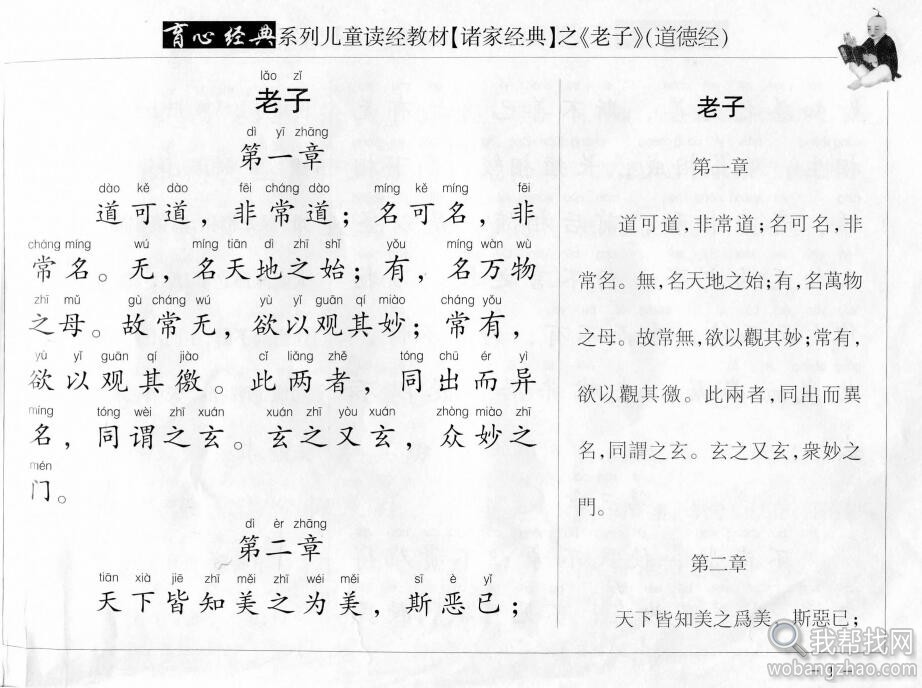 育心经典系列儿童读经教材【诸家经典】之《老子》(道德经)
lǎo zǐ
老子
dì yī zhāng
第一章
dào kě dào fēi cháng dào míng kě míng fēi
道可道，非常道；名可名，非
cháng míng wú míng tiān dì zhī shǐ yǒu míng wàn wù
常名。无，名天地之始；有，名万物
zhī mǔ gù cháng wú yù yǐ guān qí miào cháng yǒu
之母。故常无，欲以观其妙；常有，
yù yǐ guān qí jiào cǐ liǎng zhě tóng chū ér yì
欲以观其徼。此两者，同出而异
míng tóng wèi zhī xuán xuán zhī yòu xuán zhòng miào zhī
名，同谓之玄。玄之又玄，众妙之
mén
门。
dì èr zhāng
第二章
tiān xià jiē zhī měi zhī wéi měi sī è yǐ
天下皆知美之为美，斯恶已；
老子
第一章
道可道，非常道；名可名，非
常名。無，名天地之始；有，名萬物
之母。故常無，欲以觀其妙；常有，
欲以觀其徼。此兩者，同出而異
名，同謂之玄。玄之又玄，衆妙之
門。
第二章
天下皆知美之爲美，斯惡已；
我帮找网
wobangzhao.com
— 1 —